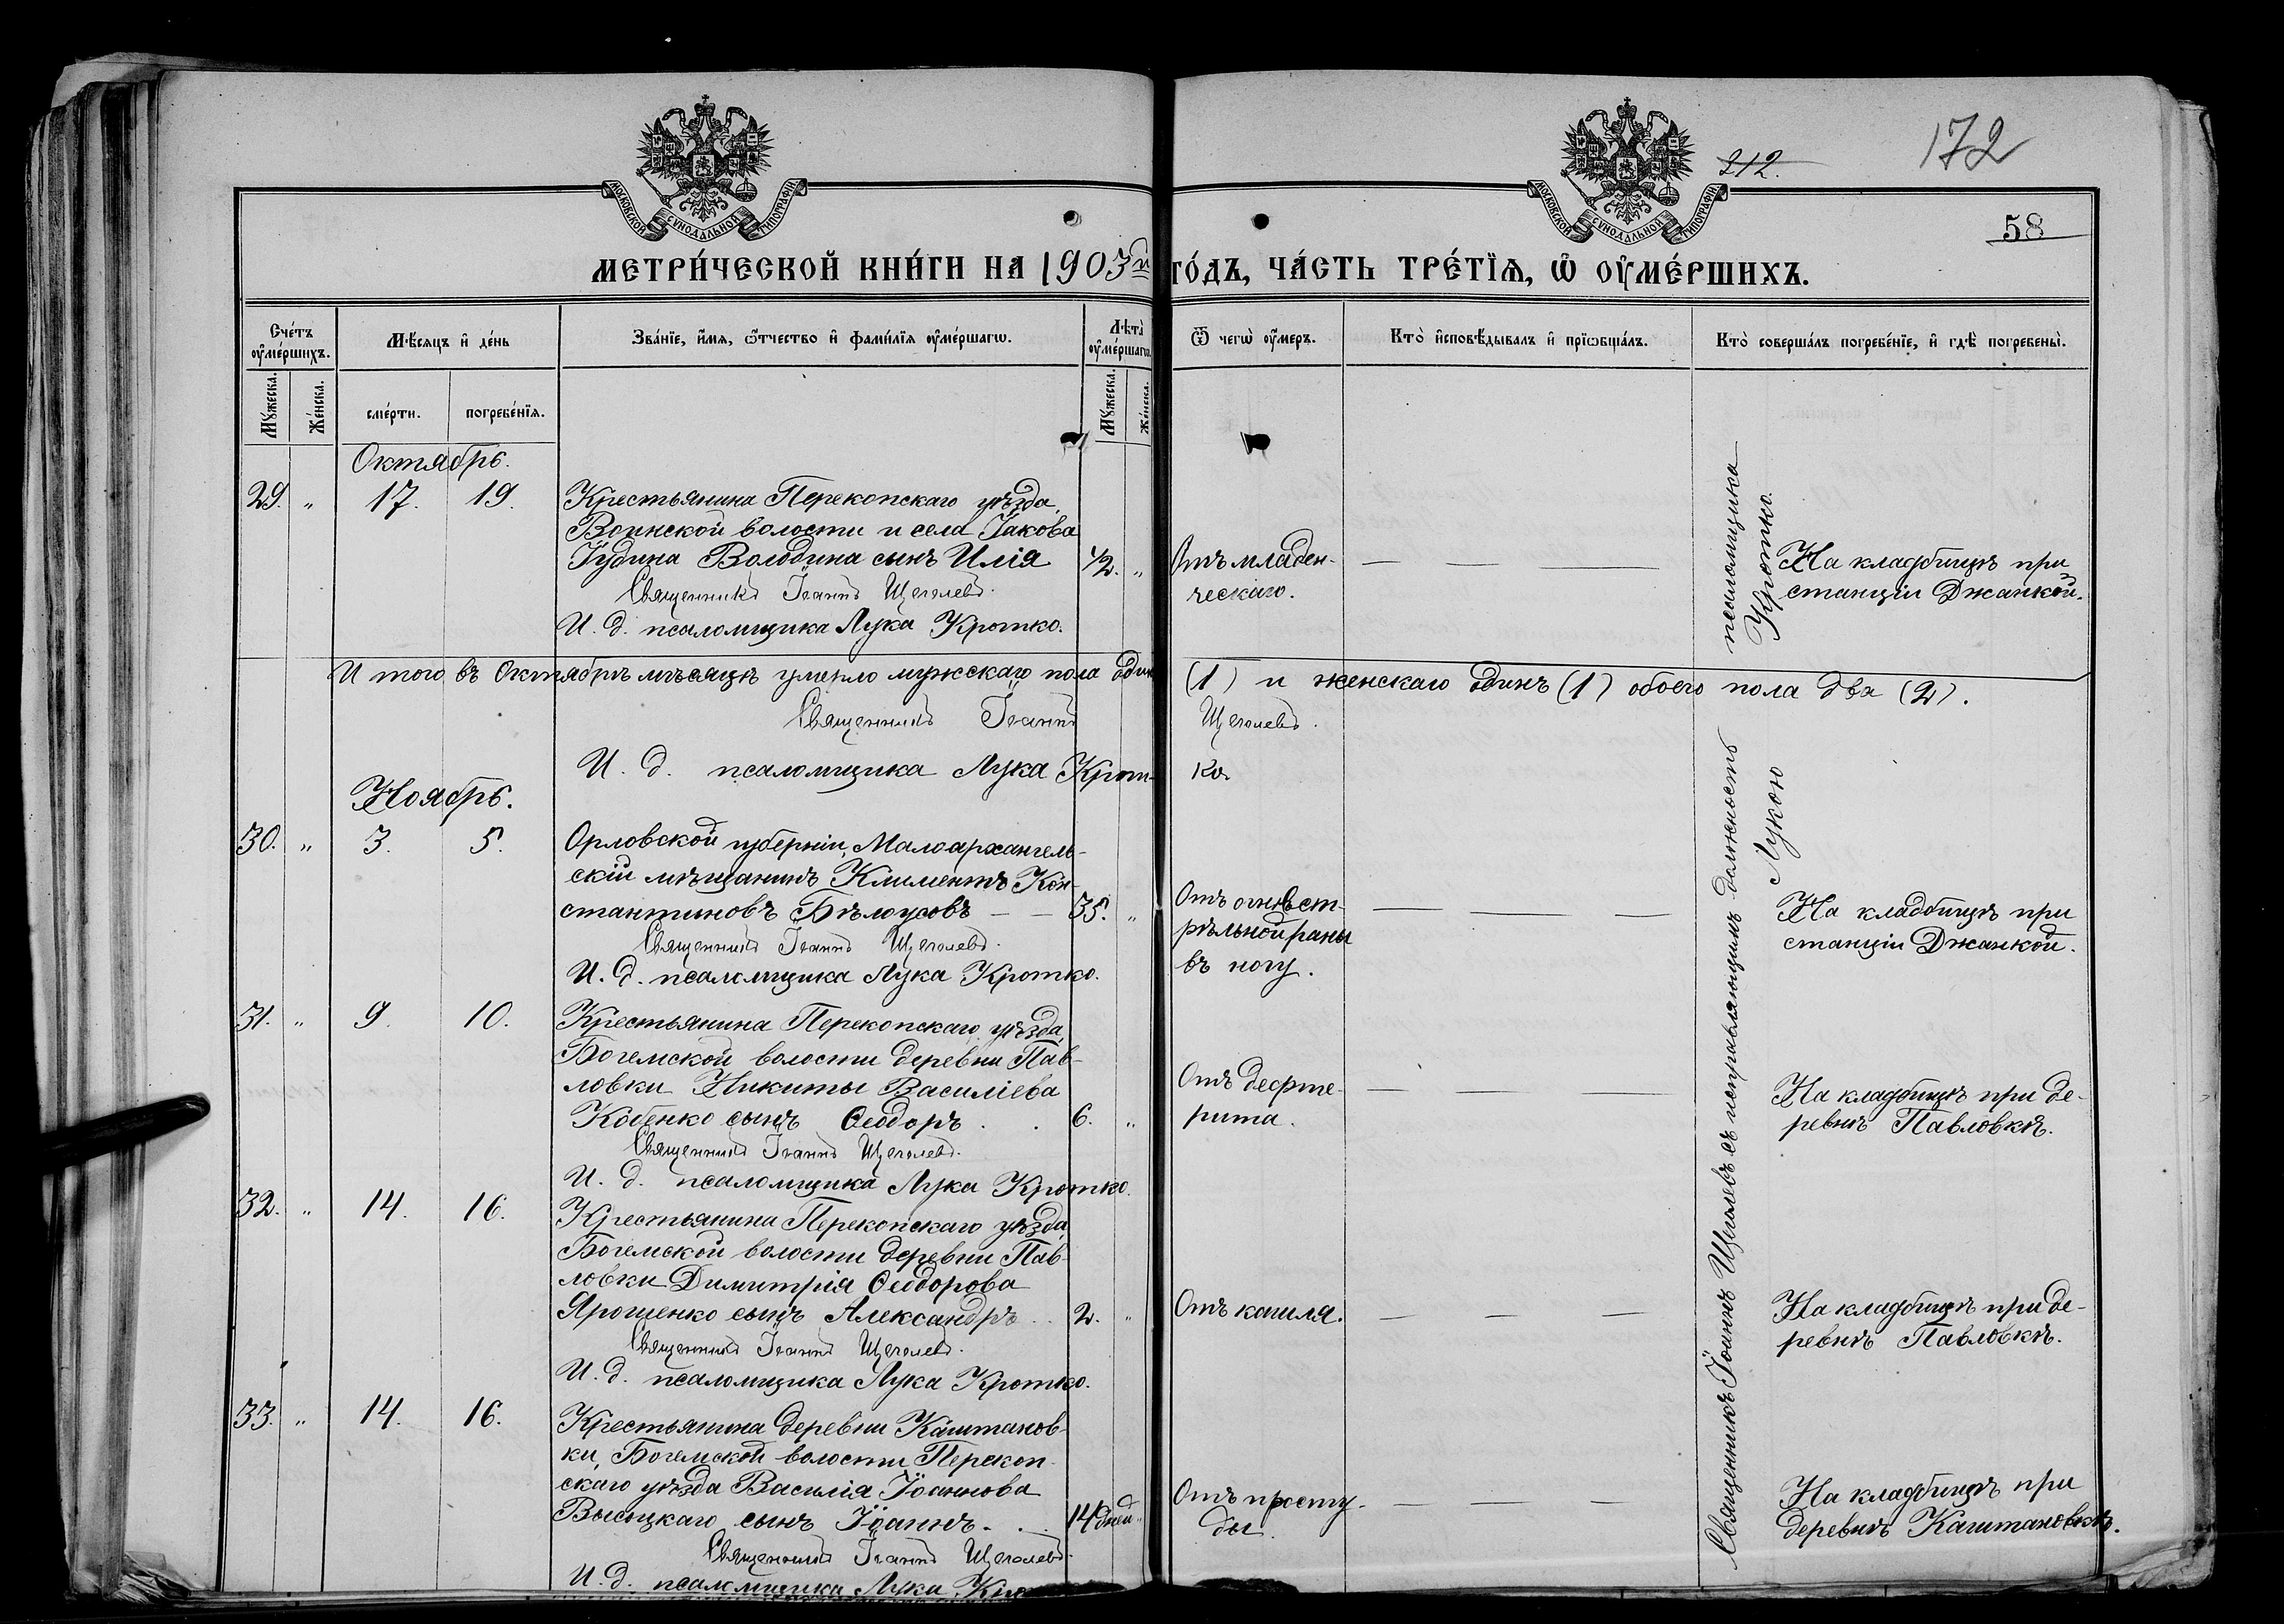 МОСКОВСКОЙ СѴНОДАЛЬНОЙ ТИПОГРАФІИ
МОСКОВСКОЙ СѴНОДАЛЬНОЙ ТИПОГРАФІИ
212.
172
58
МЕТРИ́ЧЕСКОЙ КНИ́ГИ НА 1903й ГО́ДЪ, ЧА́СТЬ ТРЕ́ТІѦ, Ѽ ОУ҆МЕ́РШИХЪ.
Сче́тъ оу҆ме́ршихъ.
Мꙋ́жеска.
Же́нска.
Мѣ́сяцъ и҆ де́нь
сме́рти.
погребе́нїѧ.
Зва́нїе, и҆́мѧ, ѻ҆́тчество и҆ фами́лїѧ оу҆ме́ршагѡ.
Лѣ́та оу҆ме́ршагѡ.
Мꙋ́жеска.
Же́нска.
Ѿ чегѡ̀ оу҆́меръ.
Кто̀ и҆сповѣ́дывалъ и҆ прїѡбща́лъ.
Кто̀ соверша́лъ погребе́нїе, и҆ гдѣ̀ погребены̀.
Октябрь.
29. „ 17. 19.
Крестьянина Перекопскаго уѣзда,
Воинской волости и села Іакова
Іудина Володина сынъ Илія 1/2. „
Священникъ Іоаннъ Щеголевъ.
И. д. псаломщика Лука Кротко.
Отъ младен-
ческаго.
На кладбищѣ при
станціи Джанкой.
И того въ Октябрѣ мѣсяцѣ умерло мужскаго пола одинъ (1) и женскаго одинъ (1) обоего пола два (2).
Священникъ Іоаннъ Щеголевъ.
И. д. псаломщика Лука Кротко.
Ноябрь.
30. „ 3. 5.
Орловской губерніи, Малоархангель-
скій мѣщанинъ Климентъ Кон-
стантиновъ Бѣлоусовъ 35. „
Священникъ Іоаннъ Щеголевъ.
И. д. псаломщика Лука Кротко.
Отъ огнест-
рѣльной раны
въ ногу.
На кладбищѣ при
станціи Джанкой.
31. „ 9. 10.
Крестьянина Перекопскаго уѣзда,
Богемской волости деревни Пав-
ловки Никиты Василіева
Кобенко сынъ Ѳеодоръ . . 6. „
Священникъ Іоаннъ Щеголевъ.
И. д. псаломщика Лука Кротко.
Отъ дефте-
рита.
На кладбищѣ при де-
ревнѣ Павловкѣ.
32. „ 14. 16.
Крестьянина Перекопскаго уѣзда,
Богемской волости деревни Пав-
ловки Димитрія Ѳеодорова
Ярошенко сынъ Александръ . . 2. „
Священникъ Іоаннъ Щеголевъ.
И. д. псаломщика Лука Кротко.
Отъ кашля.
На кладбищѣ при де-
ревнѣ Павловкѣ.
33. „ 14. 16.
Крестьянина деревни Каштанов-
ки, Богемской волости Перекоп-
скаго уѣзда Василія Іоаннова
Высоцкаго сынъ Іоаннъ . . 14 дней „
Священникъ Іоаннъ Щеголевъ.
И. д. псаломщика Лука
Отъ просту-
ды.
На кладбищѣ при
деревнѣ Каштановкѣ.
Священникъ Іоаннъ Щеголевъ съ исправляющимъ должность псаломщика
Лукою Кротко.